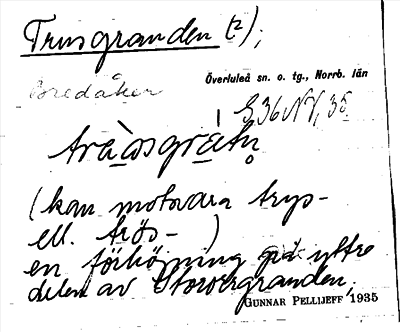 Trusgranden (-2);
Överluleå sn. o. tg., Norrb. län
Bredåker
G 36 NV, 35.
(kan motsvara trys-
ell. trös- )
en förhöjning på yttre
delen av Storörgranden,
GUNNAR PELLIJEFF 1935